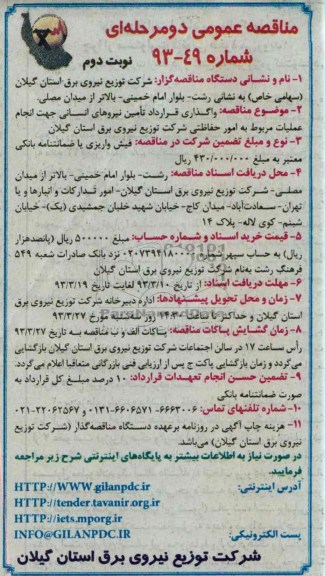 مناقصه عمومی دومرحله‌ای
شماره ۴۹-۹۳
نوبت دوم
۱- نام و نشانی دستگاه مناقصه‌گزار: شرکت توزیع نیروی برق استان گیلان
(سهامی خاص) به نشانی رشت- بلوار امام خمینی- بالاتر از میدان مصلی.
۲- موضوع مناقصه: واگذاری قرارداد تأمین نیروهای انسانی جهت انجام
عملیات مربوط به امور حفاظتی شرکت توزیع نیروی برق استان گیلان
۳- نوع و مبلغ تضمین شرکت در مناقصه: فیش واریزی یا ضمانتنامه بانکی
معتبر به مبلغ ۴۳۰/۰۰۰/۰۰۰ ریال
۴- محل دریافت اسناد مناقصه: رشت- بلوار امام خمینی- بالاتر از میدان
مصلی- شرکت توزیع نیروی برق استان گیلان- امور تدارکات و انبارها و یا
تهران- سعادت‌آباد- میدان کاج- خیابان شهید خلبان جمشیدی (یک)- خیابان
شبنم- کوی لاله- پلاک ۱۴
۵- قیمت خرید اسناد و شماره حساب: مبلغ ۵۰۰۰۰۰ ریال (پانصدهزار
ریال) به حساب سپهر شماره ۰۲۰۷۳۹۴۱۸۰۰۰ نزد بانک صادرات شعبه ۵۴۹
فرهنگ رشت به‌نام شرکت توزیع نیروی برق استان گیلان
۶- مهلت دریافت اسناد: از تاریخ ۹۳/۳/۱۰ لغایت تاریخ ۹۳/۳/۱۹
۷- زمان و محل تحویل پیشنهادها: اداره دبیرخانه شرکت توزیع نیروی برق
استان گیلان و حداکثر تا ساعت ۱۴:۳۰ روز سه‌شنبه مورخ ۹۳/۳/۲۷
۸- زمان گشایش پاکات مناقصه: پاکات الف و ب مناقصه به تاریخ ۹۳/۳/۲۷
رأس ساعت ۱۷ در سالن اجتماعات شرکت توزیع نیروی برق استان گیلان بازگشایی
می‌گردد و زمان بازگشایی پاکت ج پس از ارزیابی فنی بازرگانی متعاقبا اعلام می‌گردد.
۹- تضمین حسن انجام تعهدات قرارداد: ۱۰ درصد مبلغ کل قرارداد به
صورت ضمانتنامه بانکی
۱۰- شماره تلفنهای تماس: ۶۶۶۳۰۰۶- ۶۶۰۶۵۷۱-۰۱۳۱ و ۲۲۰۶۲۵۶۷-۰۲۱
۱۱- هزینه چاپ آگهی در روزنامه برعهده دستگاه مناقصه‌گذار (شرکت توزیع
نیروی برق استان گیلان) می‌باشد.
در صورت نیاز به اطلاعات بیشتر به پایگاه‌های اینترنتی شرح زیر مراجعه
فرمایید.
آدرس اینترنتی: HTTP://WWW.gilanpdc.ir
HTTP://tender.tavanir.org.ir
HTTP://iets.mporg.ir
پست الکترونیکی: INFO@GILANPDC.IR
شرکت توزیع نیروی برق استان گیلان